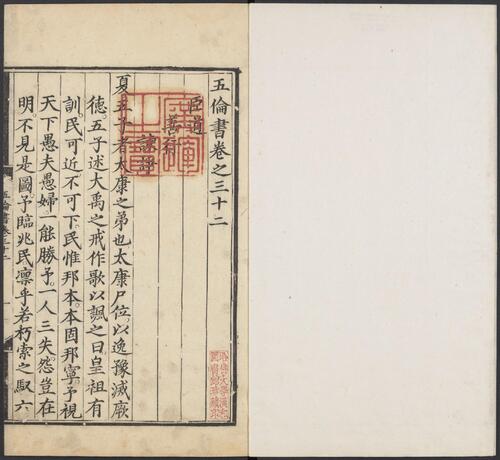 五倫書卷之三十二
臣道
善行
諫諍
夏五子者太康之弟也太康尸位以逸豫滅厥
德五子述大禹之戒作歌以諷之曰皇祖有
訓民可近不可下民惟邦本本固邦寧予視
天下愚夫愚婦一能勝予一人三失怨豈在
明不見是圖予臨兆民凛乎若朽索之馭六
五倫書卷三十二